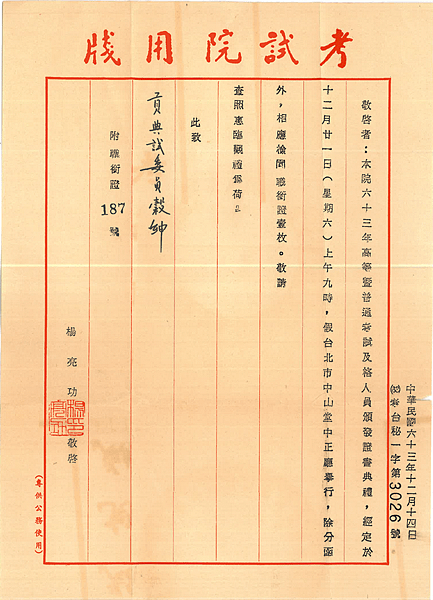 考試院用牋
中華民國六十三年十二月十四日
(63)考台秘一字第3026號
敬啓者：本院六十三年高等暨普通考試及格人員頒發證書典禮，經定於
十二月廿一日（星期六）上午九時，假台北市中山堂中正廳舉行，除分函
外，相應檢同 職銜證壹枚。敬請
查照惠臨觀禮爲荷。
此致
貢典試委員穀紳
附職銜證187號
楊亮功 敬啓
(專供公務使用)